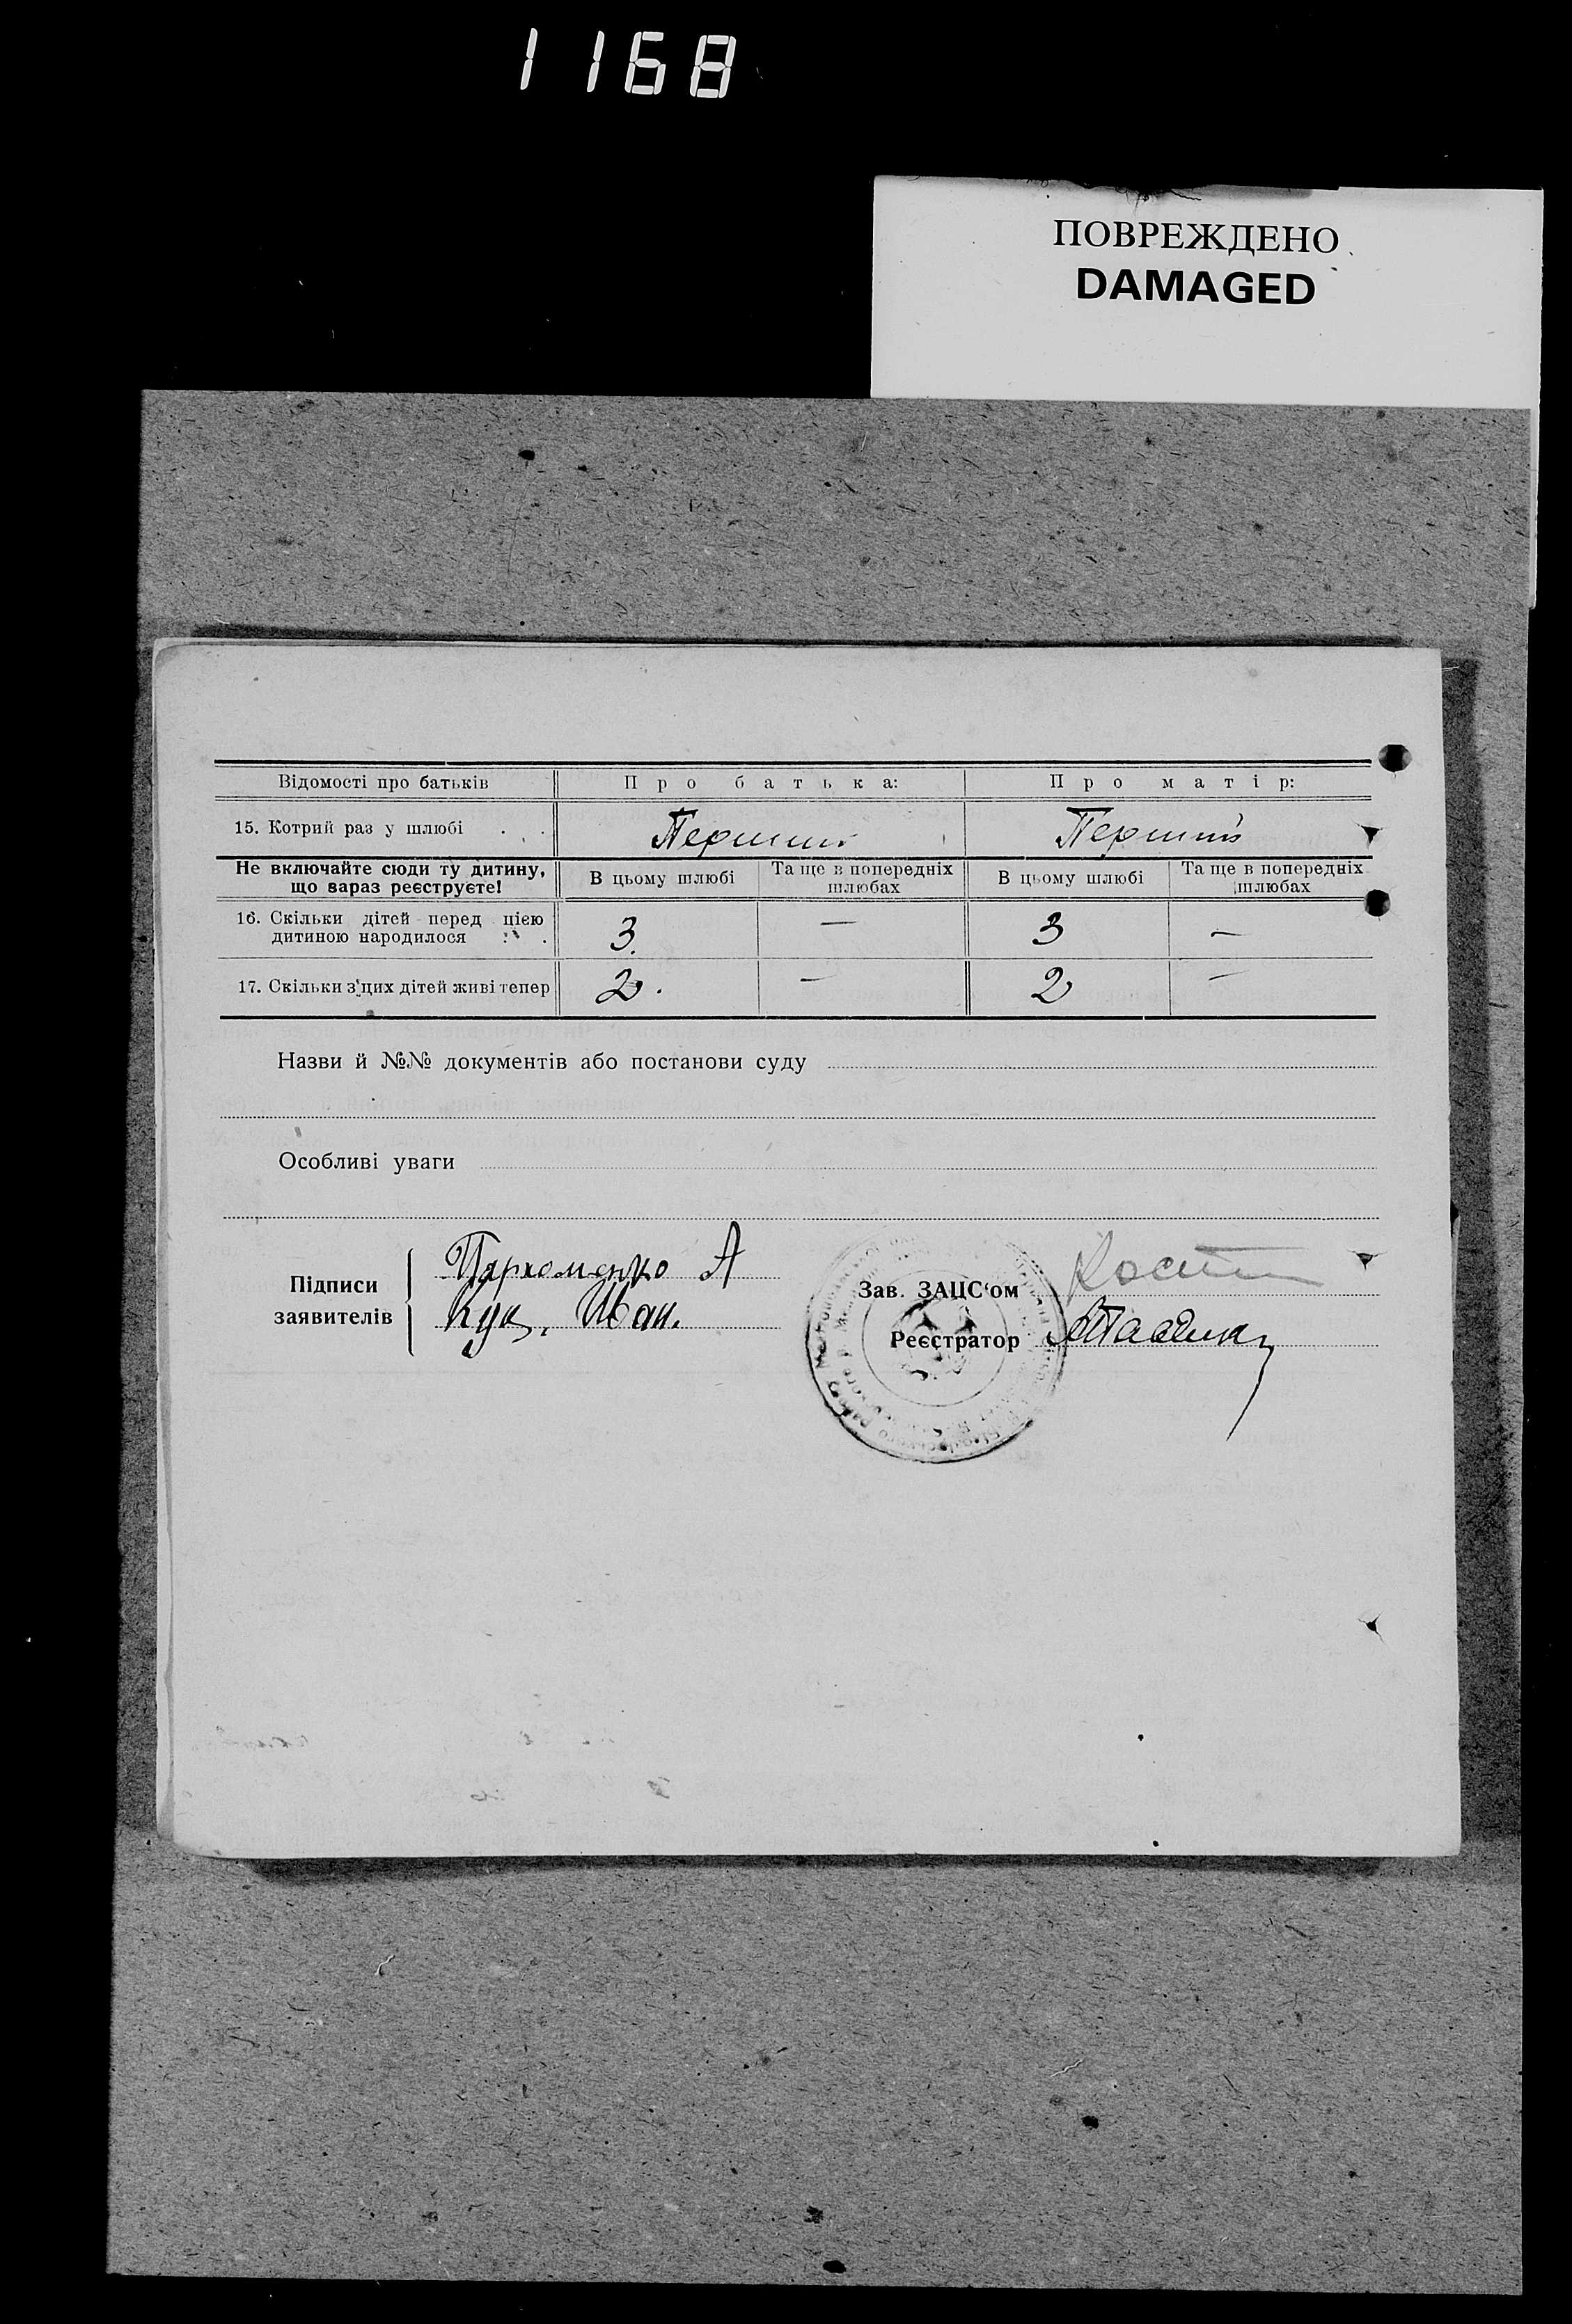 1168
ПОВРЕЖДЕНО
DAMAGED
Відомості про батьків Про батька: Про матір:
15. Котрий раз у шлюбі . . Перший Перший
Не включайте сюди ту дитину, що вараз реєструєте! В цьому шлюбі Та ще в попередніх шлюбах В цьому шлюбі Та ще в попередніх шлюбах
16. Скільки дітей перед цією
дитиною народилося . . 3. — 3 —
17. Скільки з'цих дітей живі тепер 2. — 2 —
Назви й №№ документів або постанови суду
Особливі уваги
Підписи
заявителів
Пархоменко А
Кущ. Иван.
Зав. ЗАЦС'ом
Реєстратор